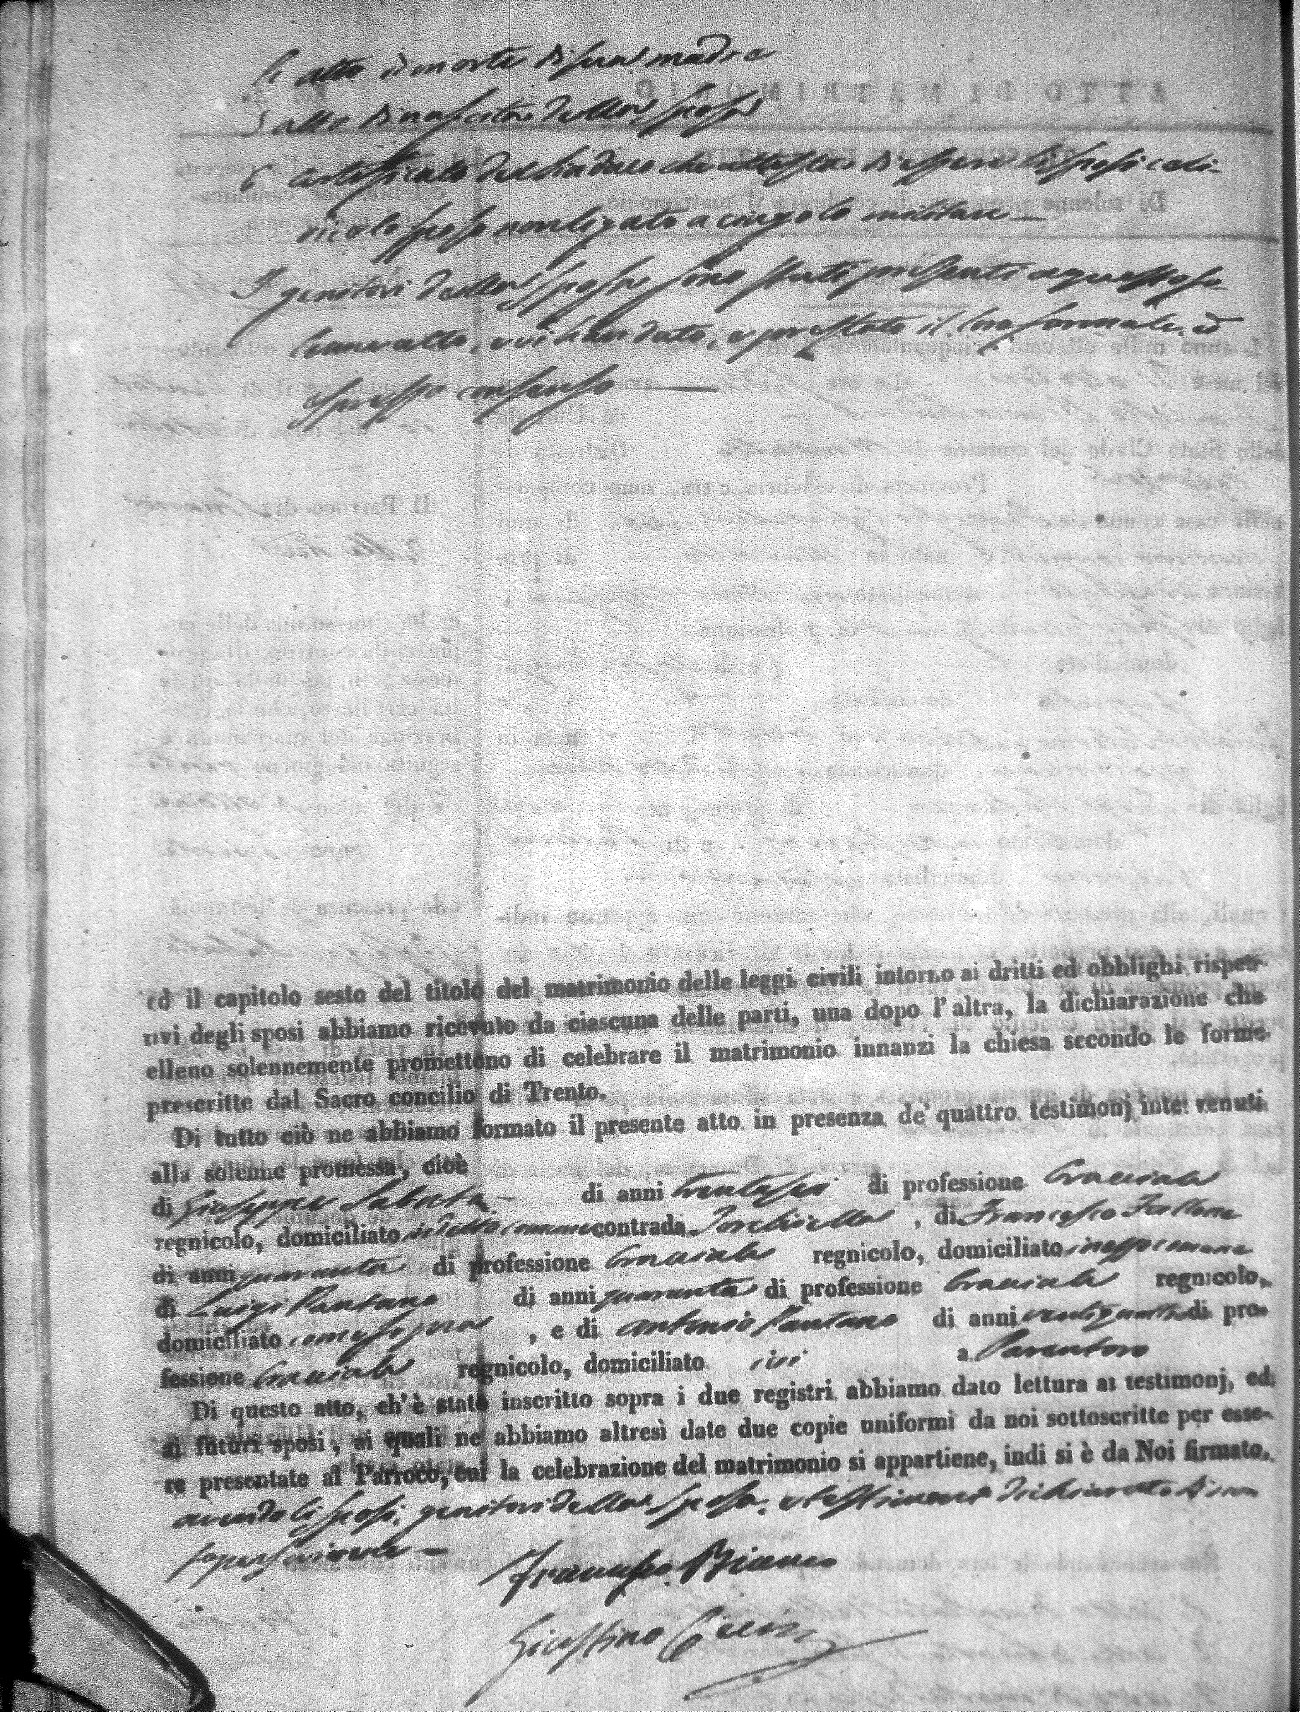 4 atto di morte di sua madre
5 atto di nascita della sposa
6 certificato del Sindaco che attesta di essere li sposi celi-
bi e lo sposo non ligato a congelo militare —
I genitori della sposa sono stati presenti a questo so-
lenne atto, ed han dato, e prestato il loro formale, ed
espresso consenso —
ed il capitolo sesto del titolo del matrimonio delle leggi civili intorno ai dritti ed obblighi rispet-
tivi degli sposi abbiamo ricevuto da ciascuna delle parti, una dopo l'altra, la dichiarazione che
elleno solennemente promettono di celebrare il matrimonio innanzi la chiesa secondo le forme
prescritte dal Sacro concilio di Trento.
Di tutto ciò ne abbiamo formato il presente atto in presenza de' quattro testimonj intervenuti
alla solenne promessa, cioè
di Giuseppe Sabato di anni trentasei di professione bracciale
regnicolo, domiciliato in detto comune contrada Torchiello, di Francesco
di anni quaranta di professione bracciale regnicolo, domiciliato in esso comune
di Luigi Pantano di anni quaranta di professione bracciale regnicolo,
domiciliato come sopra, e di Antonio Pantano di anni ventiquattro di pro-
fessione bracciale regnicolo, domiciliato ivi a Parentoro
Di questo atto, ch'è stato inscritto sopra i due registri abbiamo dato lettura ai testimonj, ed
ai futuri sposi, ai quali ne abbiamo altresì date due copie uniformi da noi sottoscritte per esse-
re presentate al Parroco, cui la celebrazione del matrimonio si appartiene, indi si è da Noi firmato.
avendo li sposi, genitori della sposa, e testimoni dichiarato di non
saper scrivere —
Francesco Bianco
Giustino